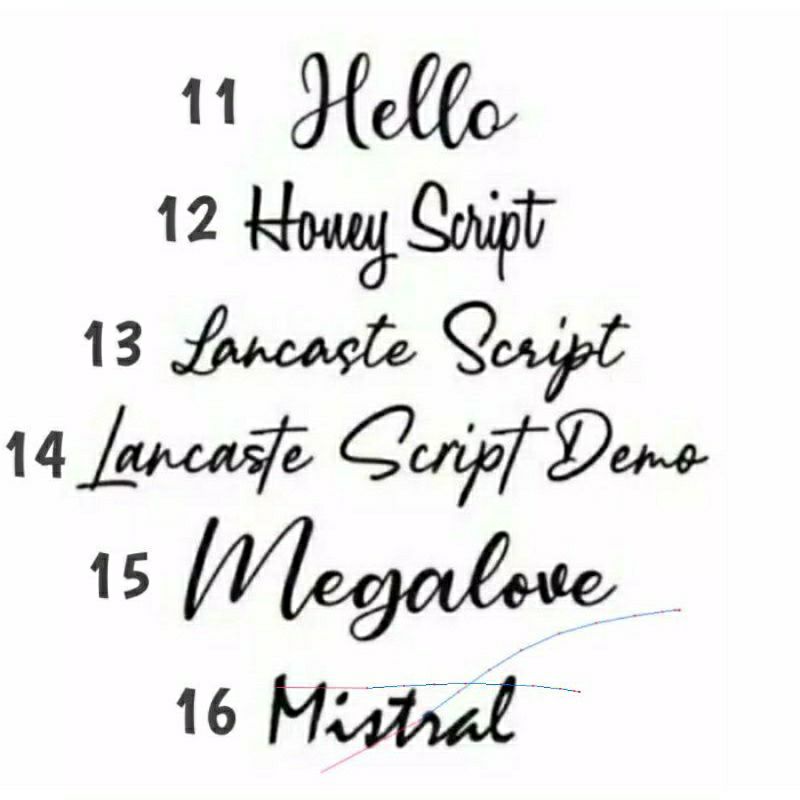 11 Hello
12 Honey Script
13 Lancaste Script
14 Lancaste Script Demo
15 Megalove
16 Mistral